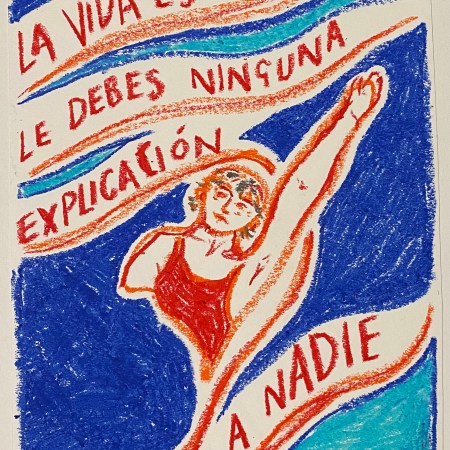 LA VIDA ES
LE DEBES NINGUNA
EXPLICACIÓN
A NADIE